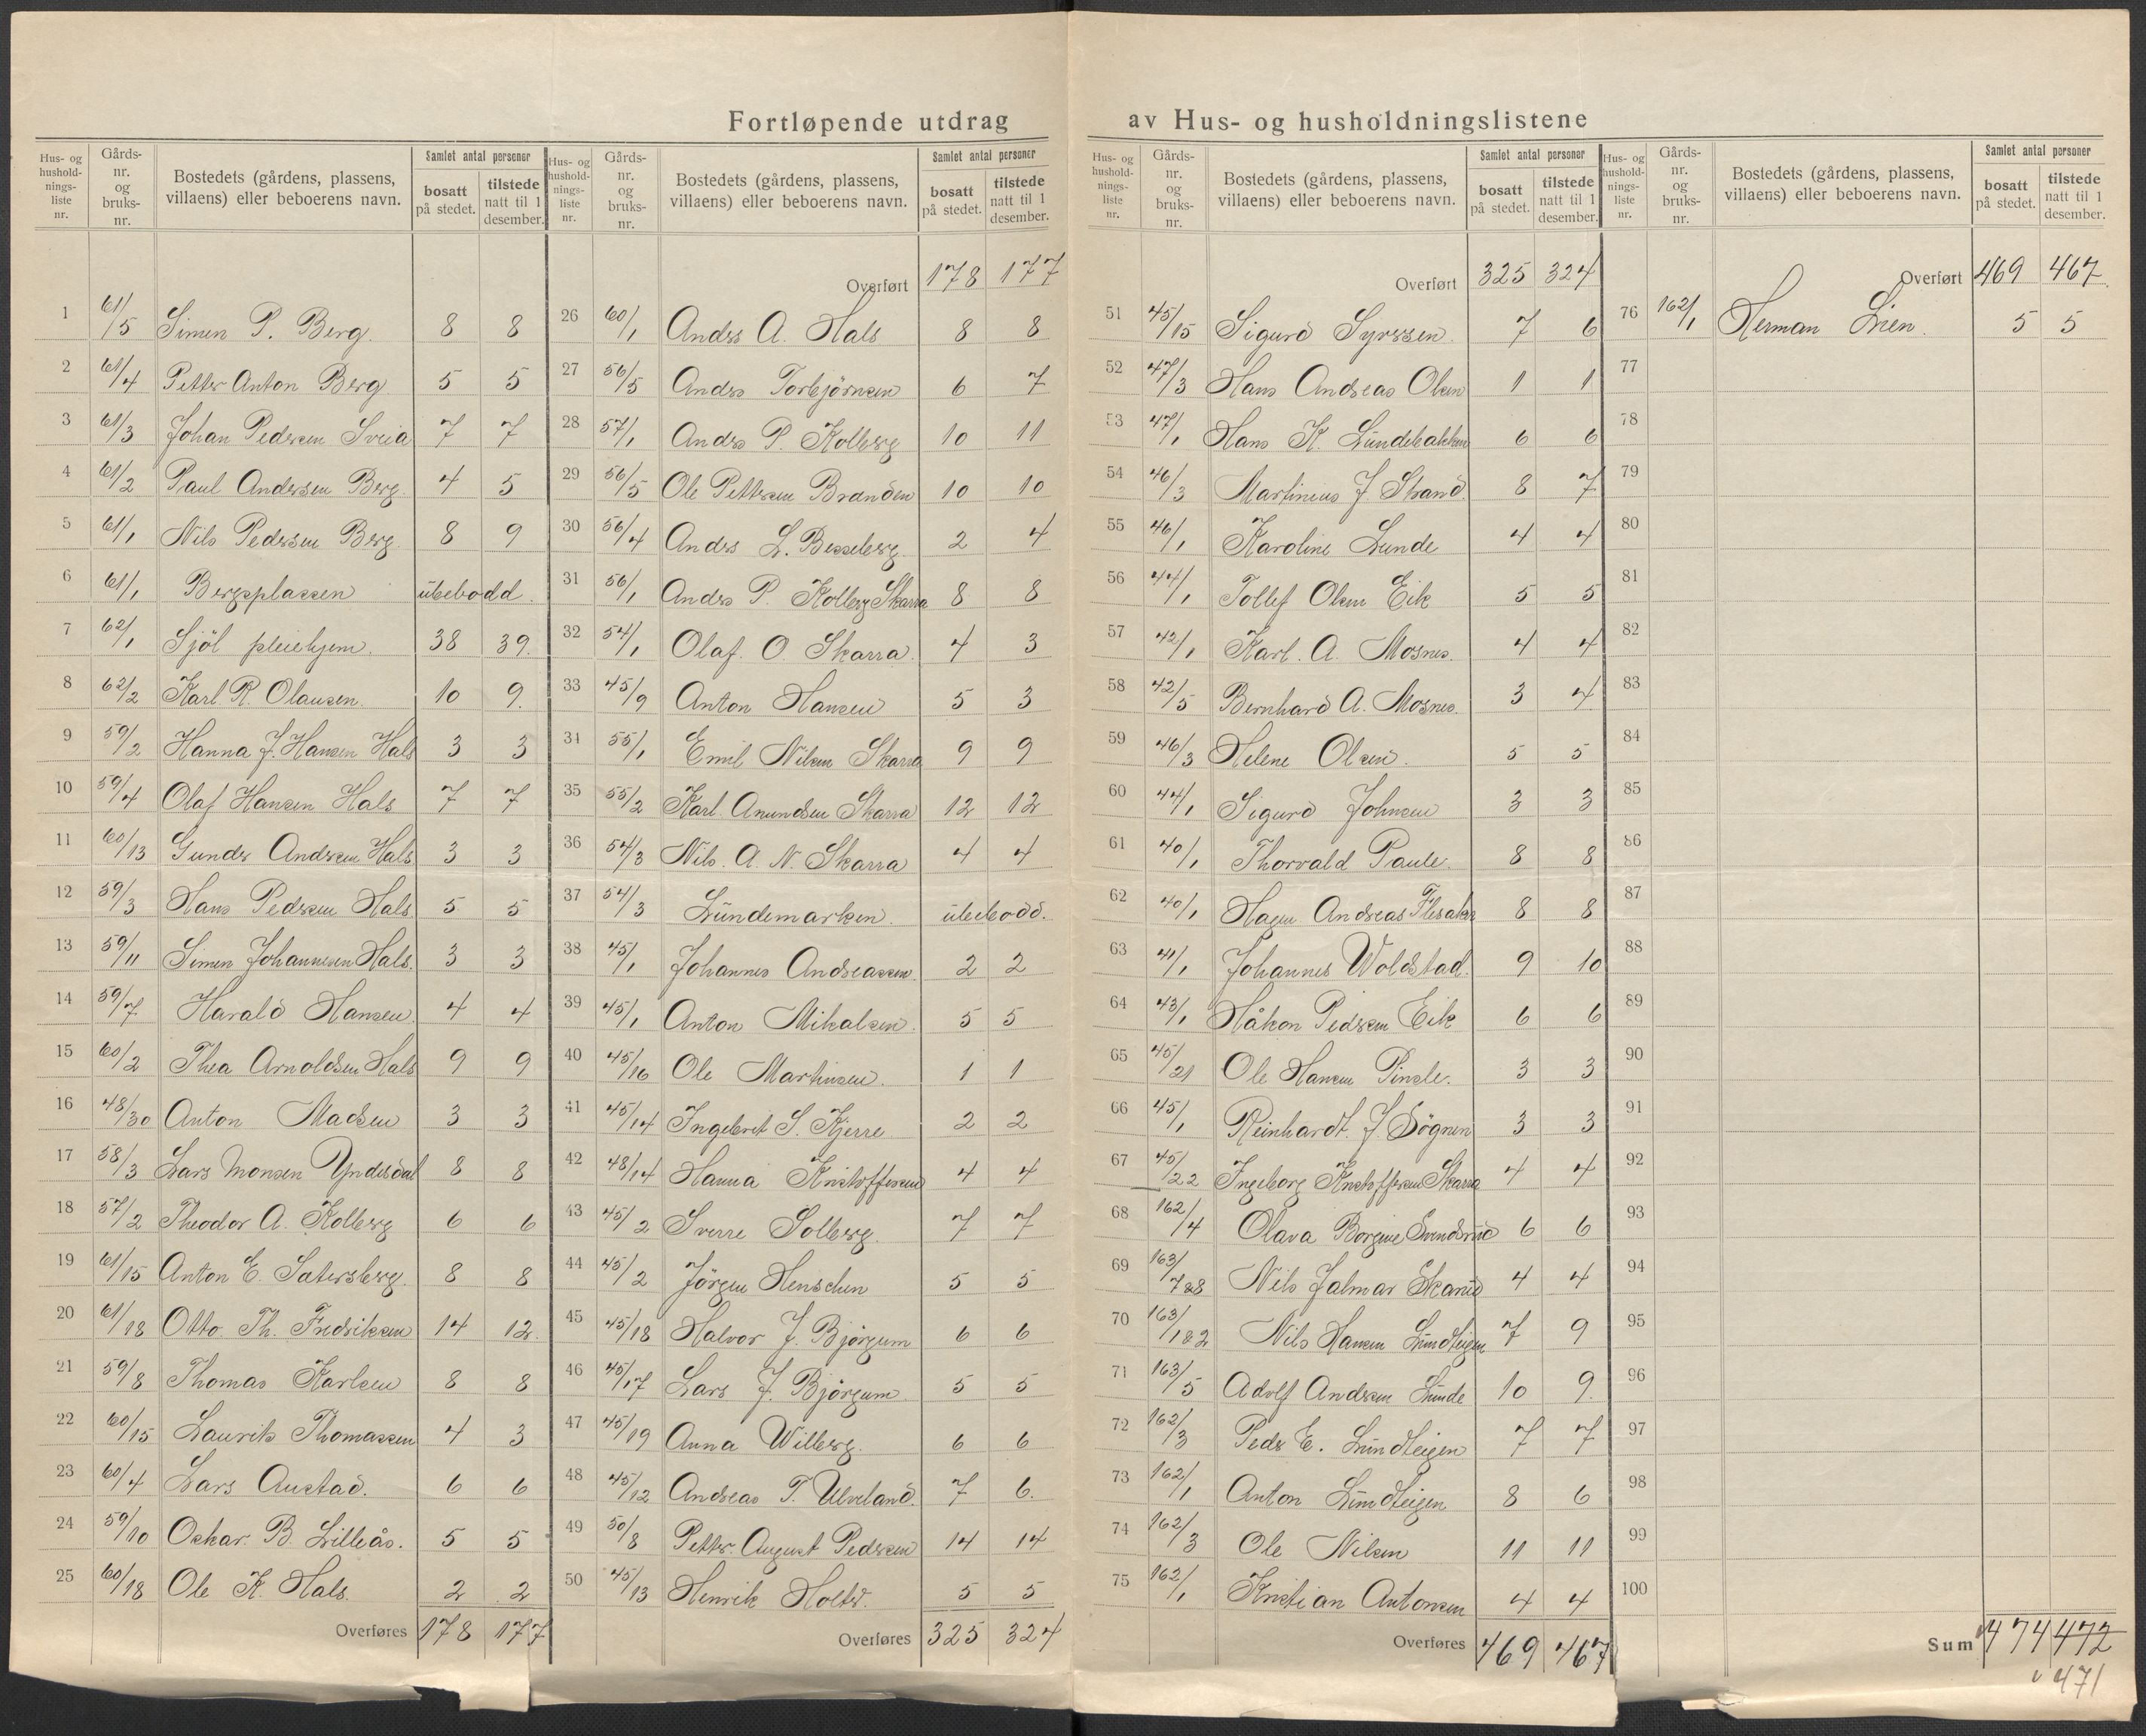 Fortløpende utdrag av Hus- og husholdningslistene
Hus- og hushold-nings-liste nr. | Gårds-nr. og bruks-nr. | Bostedets (gårdens, plassens, villaens) eller beboerens navn. | Samlet antal personer | bosatt på stedet. | tilstede natt til 1 desember.
1 61/5 Simen P. Berg. 8 8
2 61/4 Petter Anton Berg 5 5
3 61/3 Johan Pedersen Sveia 7 7
4 61/2 Paul Andersen Berg. 4 5
5 61/1 Nils Pedersen Berg. 8 9
6 61/1 Bergsplassen ubebodd.
7 62/1 Sjöl pleiehjem. 38 39.
8 62/2 Karl R. Olausen. 10 9.
9 59/2 Hanna J. Hansen Hals 3 3
10 59/4 Olaf Hansen Hals 7 7
11 60/13 Gunder Andersen Hals 3 3
12 59/3 Hans Pedersen Hals 5 5
13 59/11 Simen Johannesen Hals. 3 3
14 59/7 Harald Hansen 4 4
15 60/2 Thea Arnoldsen Hals 9 9
16 48/30 Anton Madsen 3 3
17 58/3 Lars Monsen Yndesdal 8 8
18 57/2 Theodor A. Kolberg 6 6
19 61/15 Anton E. Satersberg. 8 8
20 61/18 Otto Th. Fredriksen 14 12.
21 59/8 Thomas Karlsen 8 8
22 60/15 Laurits Thomassen 4 3
23 60/4 Lars Austad. 6 6
24 59/10 Oskar B. Lilleås. 5 5
25 60/18 Ole K. Hals. 2 2
Overføres 178 177
Hus- og hushold-nings-liste nr. | Gårds-nr. og bruks-nr. | Bostedets (gårdens, plassens, villaens) eller beboerens navn. | Samlet antal personer | bosatt på stedet. | tilstede natt til 1 desember.
Overført 178 177
26 60/1 Anders A. Hals 8 8
27 56/5 Anders Torbjørnsen 6 7
28 57/1 Anders P. Kolberg 10 11
29 56/5 Ole Pettersen Branden 10 10
30 56/4 Anders L. Besseberg. 2 4
31 56/1 Anders P. Kolberg Skarra 8 8
32 54/1 Olaf O. Skarra. 4 3
33 45/9 Anton Hansen 5 3
34 55/1 Emil Nilsen Skarra 9 9
35 55/2 Karl Amundsen Skarra 12 12
36 54/3 Nils A. N. Skarra 4 4
37 54/3 Lundemarken. ubebodd.
38 45/1 Johannes Andreassen 2 2
39 45/1 Anton Mikalsen. 5 5
40 45/16 Ole Martinsen. 1 1
41 45/14 Ingebret S. Kjerre 2 2
42 48/14 Hanna Kristoffersen 4 4
43 45/2 Sverre Solberg. 7 7
44 45/2 Jörgen Henschen 5 5
45 45/18 Halvor J. Bjørgum 6 6
46 45/17 Lars J. Bjørgum 5 5
47 45/19 Anna Willberg. 6 6
48 45/12 Andreas T. Ulveland. 7 6.
49 50/8 Petter August Pedersen 14 14
50 45/13 Henrik Holter. 5 5
Overføres 325 324
Hus- og hushold-nings-liste nr. | Gårds-nr. og bruks-nr. | Bostedets (gårdens, plassens, villaens) eller beboerens navn. | Samlet antal personer | bosatt på stedet. | tilstede natt til 1 desember.
Overført 325 324
51 45/15 Sigurd Syrssen. 7 6
52 47/3 Hans Andreas Olsen 1 1
53 47/1 Hans K. Lundebakken 6 6
54 46/3 Martinius J. Strand. 8 7
55 46/1 Karoline Lunde 4 4
56 44/1 Tollef Olsen Eik 5 5
57 42/1 Karl. A. Mosnes. 4 4
58 42/5 Bernhard A. Mosnes. 3 4
59 46/3 Helene Olsen. 5 5
60 44/1 Sigurd Johnsen 3 3
61 40/1 Thorvald Paule. 8 8
62 40/1 Hagen Andreas Flesaker 8 8
63 41/1 Johannes Woldstad. 9 10
64 43/1 Håkon Pedersen Eik 6 6
65 45/21 Ole Hansen Pinsle. 3 3
66 45/1 Reinhardt. J. Sögnen 3 3
67 45/22 Ingeborg Kristoffersen Skarra 4 4
68 162/4 Olava Borgine Svendsrud 6 6
69 163/7&8 Nils Jalmar Skarud 4 4
70 163/1&2 Nils Hansen Lundteigen 7 9
71 163/5 Adolf Andersen Lunde 10 9.
72 162/3 Peder E. Lundteigen 7 7
73 162/1 Anton Lundteigen 8 6
74 162/3 Ole Nilsen 11 11
75 162/1 Kristian Antonsen 4 4
Overføres 469 467
Hus- og hushold-nings-liste nr. | Gårds-nr. og bruks-nr. | Bostedets (gårdens, plassens, villaens) eller beboerens navn. | Samlet antal personer | bosatt på stedet. | tilstede natt til 1 desember.
Overført 469 467
76 162/1 Herman Lien. 5 5
77
78
79
80
81
82
83
84
85
86
87
88
89
90
91
92
93
94
95
96
97
98
99
100
Sum 474 472
471